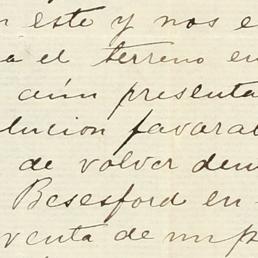 n este y nos e
a el terreno en
aún presenta
lucion favorab
de volver den
Besesford en
venta de mi p